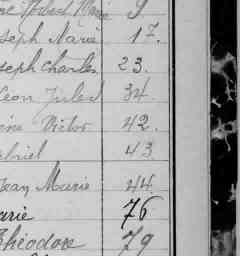 Marie 9
seph Marie 17.
seph Charles 23.
Léon Jules 34
Victor 42.
briel 43
Jean Marie 44
arie 76
Théodore 79